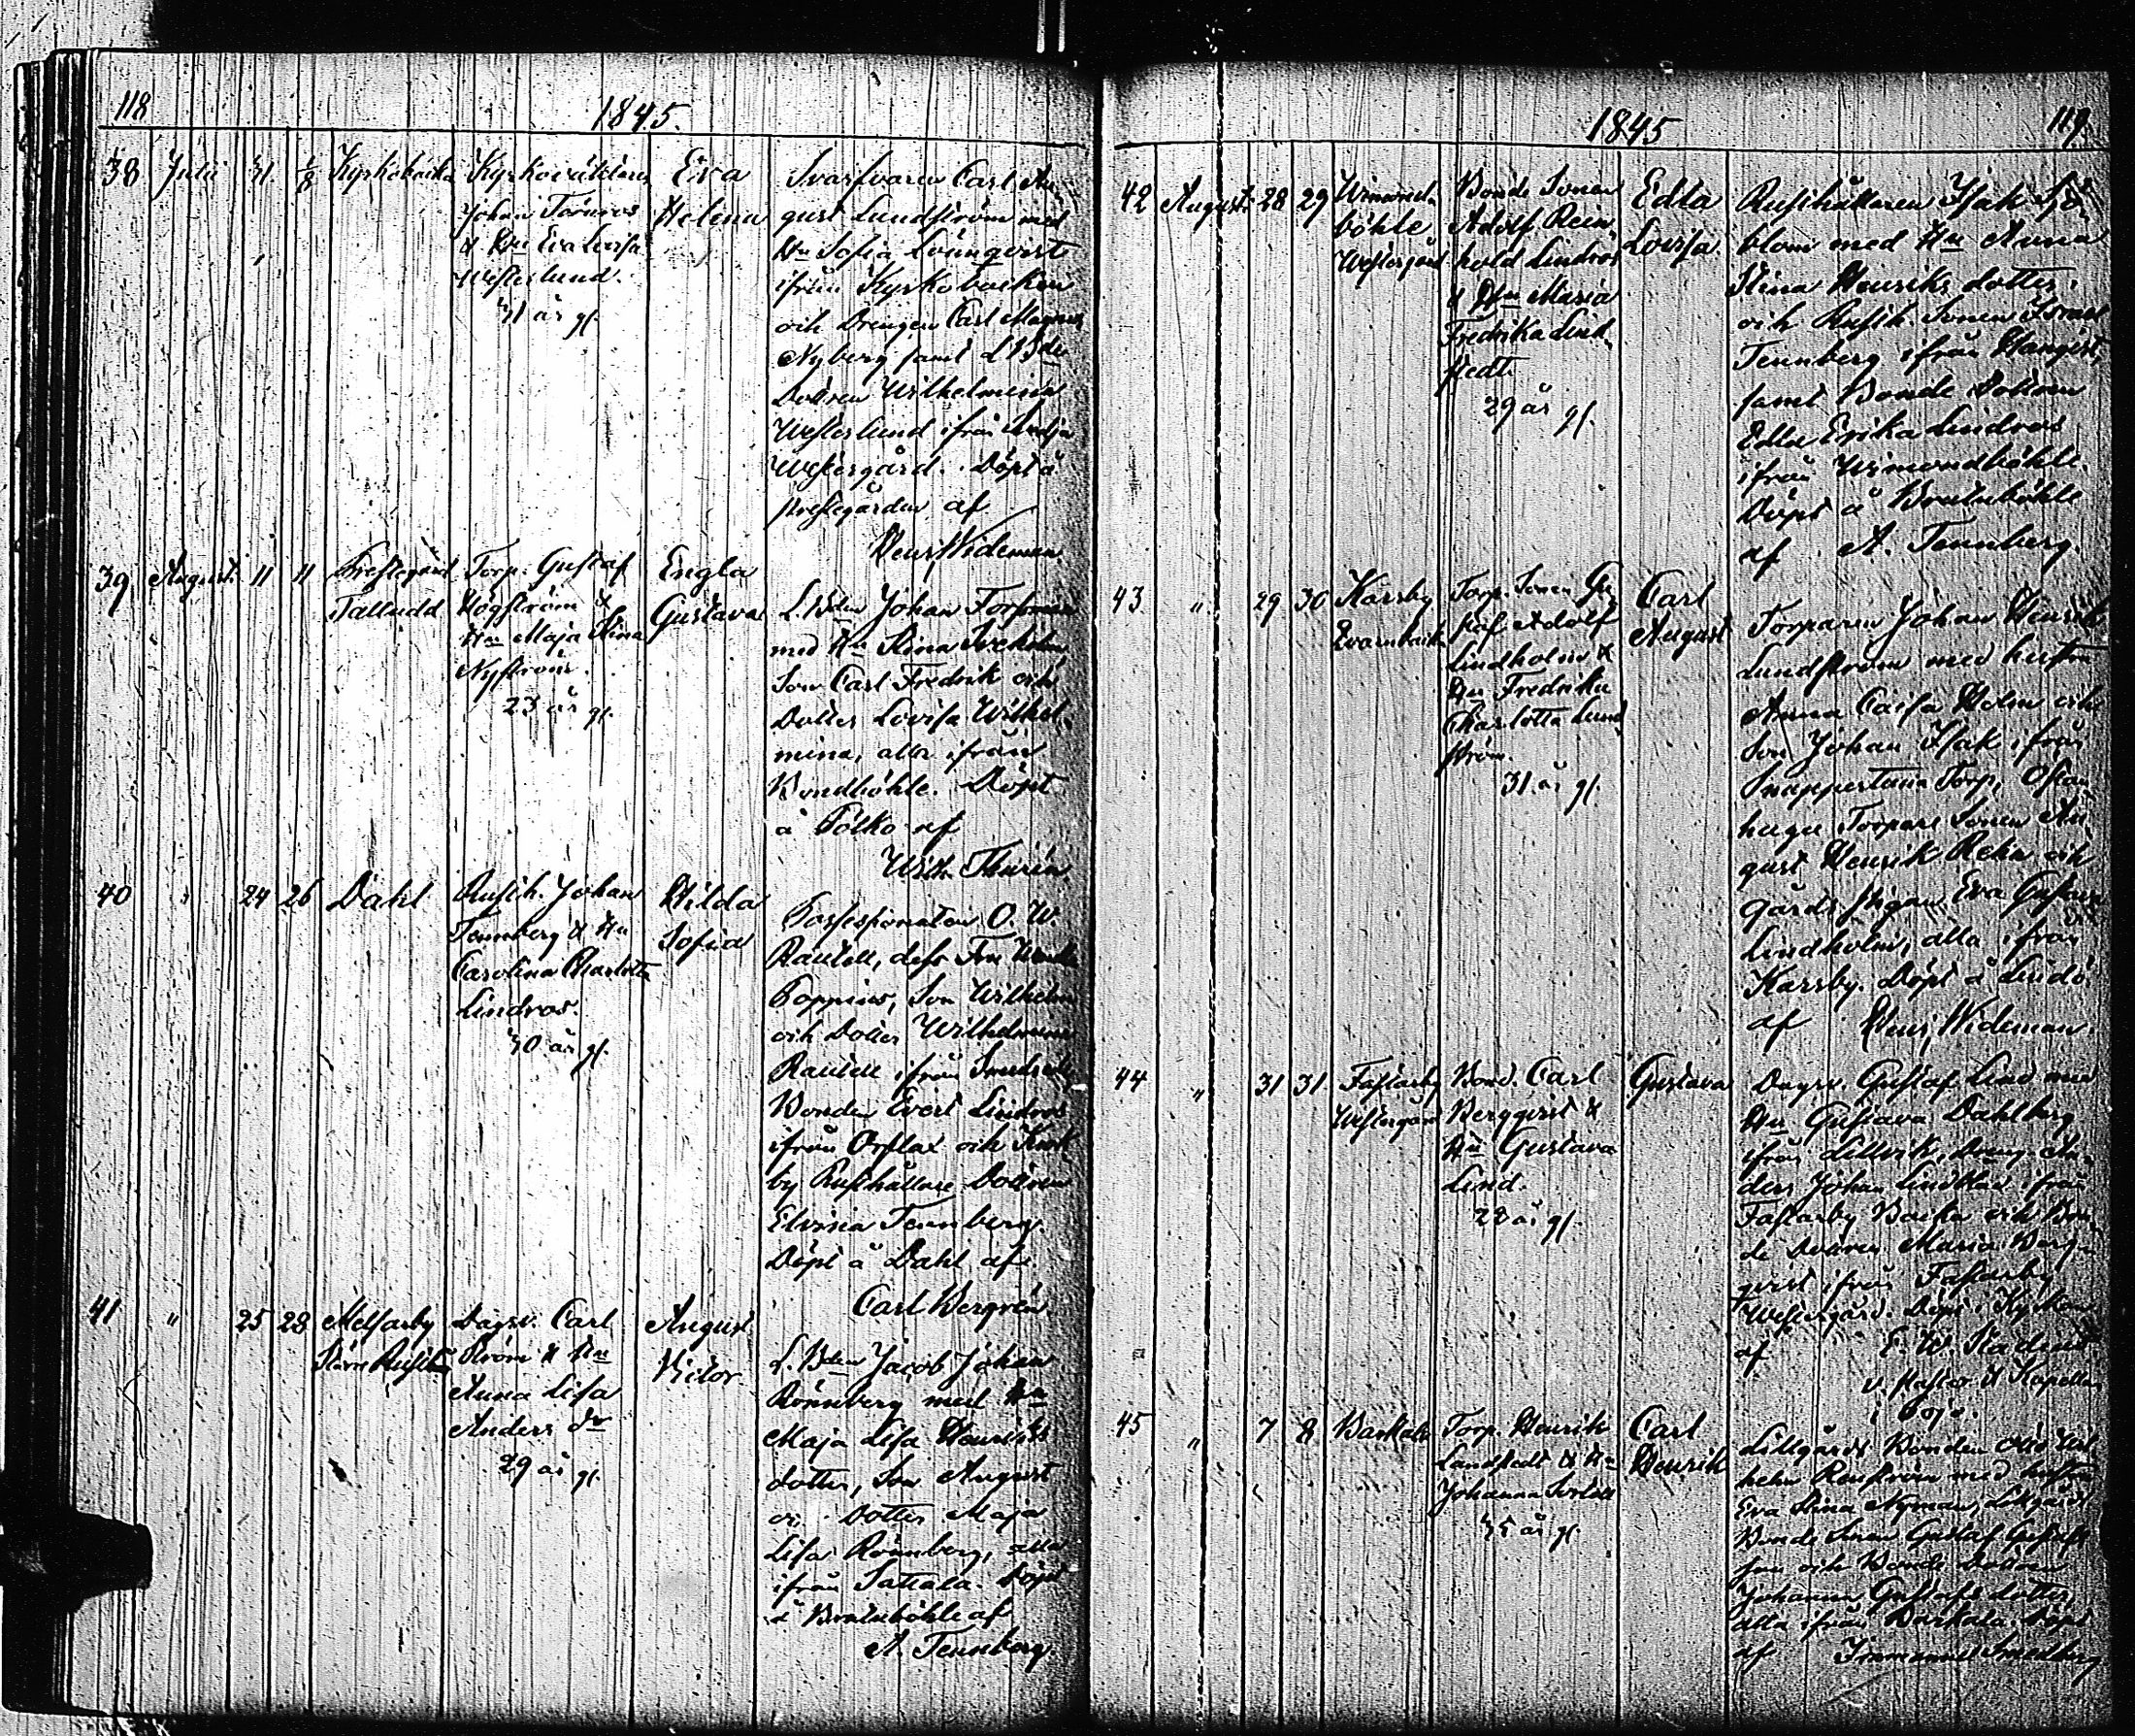 118
1845.
38 Julii 31. 1/8 Kyrkobacka
Kyrkoväktaren
Johan Törnros
& Hu Eva Lovisa
Westerlund.
31 år gl.
Eva
Helena
Svarfvaren Carl Au-
gust Lundström med
Hu Sofia Lönnqvist
ifrån Kyrkobacken
och Drengen Carl Magnus
Nyberg samt
Dottren Wilhelmina
Westerlund ifrån
Westergård. Döpt å
Prestegården af
Henr. Wideman.
39 August. 11 11 Prestegård
Talludd
Torp. Gustaf
Högström &
Hu Maja Stina
Nyström.
23 år gl.
Engla
Gustava
L.Bden Johan Forsman
med Hu Stina
Son Carl Fredrik och
Dotter Lovisa Wilhel-
mina, alla ifrån
Bondböhle. Döpt
å Tölko af
Wilh. Thurén.
40 " 24 26 Dahl
Rusth. Johan
Tennberg & Hu
Carolina Charlotta
Lindros.
30 år gl.
Hilda
Sofia
Possessionaten O. W.
Rautell, dess Fru
Poppius, Son Wilhelm
och Dotter Wilhelmina
Rautell ifrån
Bonden Evert Lindros
ifrån Orslax och
by Rusthållare Dottren
Elvina Tennberg.
Döpt å Dahl af
Carl Bergrén.
41 " 25 28 Melsarby
Störs Rusth.
Dagsv. Carl
Ström & Hu
Anna Lisa
Anders dr
29 år gl.
August
Victor
L.Bden Jacob Johan
Rönnberg med Hu
Maja Lisa Henriks
dotter, Son August
o. Dotter Maja
Lisa Rönnberg, alla
ifrån Sattala. Döpt
å Bratuböhle af
A. Tennberg.
1845
119
42 August. 28 29 Wimond-
böhle
Westergård
Bonde Sonen
Adolf Rein-
hold Lindros
& Hu Maria
Fredrika Lind-
stedt.
29 år gl.
Edla
Lovisa.
Rusthållaren Isak Sjö-
blom med Hu Anna
Stina Henriks dotter,
och Rusth. Sonen Israel
Tennberg ifrån Hangist,
samt Bonde Dottren
Edla Erika Lindros
ifrån Wimondböhle.
Döpt å Bratuböhle
af A. Tennberg.
43 " 29 30 Karsby
Qvarnbacka
Torp. Sonen Gu-
staf Adolf
Lindholm &
Hu Fredrika
Charlotta Lund-
ström.
31 år gl.
Carl
August
Torparen Johan Henrik
Lundström med hustru
Anna Caisa Holm och
Son Johan Isak ifrån
Snappertuna Torp,
Torpare Sonen Au-
gust Henrik Rehn och
gårds pigan Eva Gustava
Lindholm, alla ifrån
Karsby. Döpt å Lindö
af Henr. Wideman.
44 " 31 31. Fastarby
Westergård
Bond. Carl
Bergqvist &
Hu Gustava
Lind.
28 år gl.
Gustava
Dagsv. Gustaf Lind med
Hu Gustava Dahlberg
ifrån Lillvik, Dreng An-
ders Johan Lindblad ifrån
Fastarby Backa och Bon-
de Dottren Maria Berg-
qvist ifrån Fastarby
Westergård. Döpt i Kyrkan
af E. W. Stadius
v. Pastor & Kapellan
i Pojo.
45 " 7 8 Baskala
Torp. Henrik
Landstedt & Hu
Johanna
35 år gl.
Carl
Henrik
Lillgårds Bonden
helm Renström med hustru
Eva Stina Nyman, Lillgård
Bonde Sonen Gustaf Gustafs
son och Bonde Dottren
Johanna Gustafs dotter,
alla ifrån Baskala. Döpt
af Immanuel Smedberg